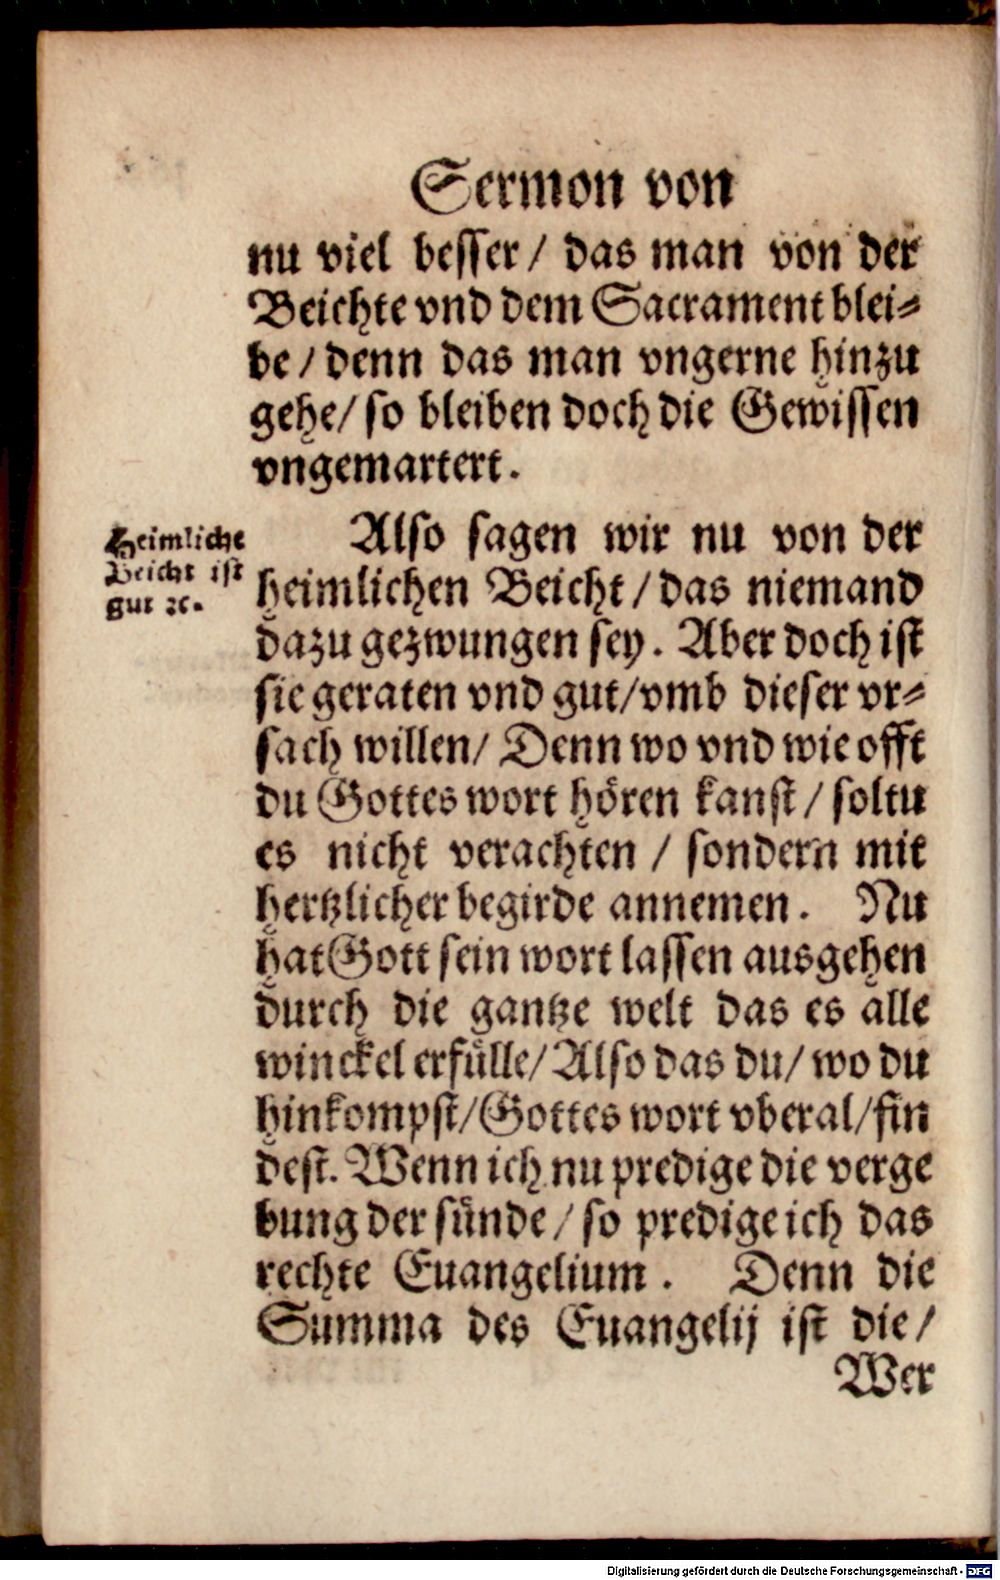 Sermon von
nu viel besser / das man von der
Beichte vnd dem Sacrament blei⸗
be / denn das man vngerne hinzu
gehe / so bleiben doch die Gewissen
vngemartert.
Heimliche
Beicht ist
gut ꝛc.
Also sagen wir nu von der
heimlichen Beicht / das niemand
dazu gezwungen sey. Aber doch ist
sie geraten vnd gut / vmb dieser vr⸗
sach willen / Denn wo vnd wie offt
du Gottes wort hören kanst / soltu
es nicht verachten / sondern mit
hertzlicher begirde annemen. Nu
hat Gott sein wort lassen ausgehen
durch die gantze welt das es alle
winckel erfülle / Also das du / wo du
hinkompst / Gottes wort vberal / fin
dest. Wenn ich nu predige die verge
bung der sünde / so predige ich das
rechte Euangelium. Denn die
Summa des Euangelij ist die /
Wer
Digitalisierung gefördert durch die Deutsche Forschungsgemeinschaft - DFG